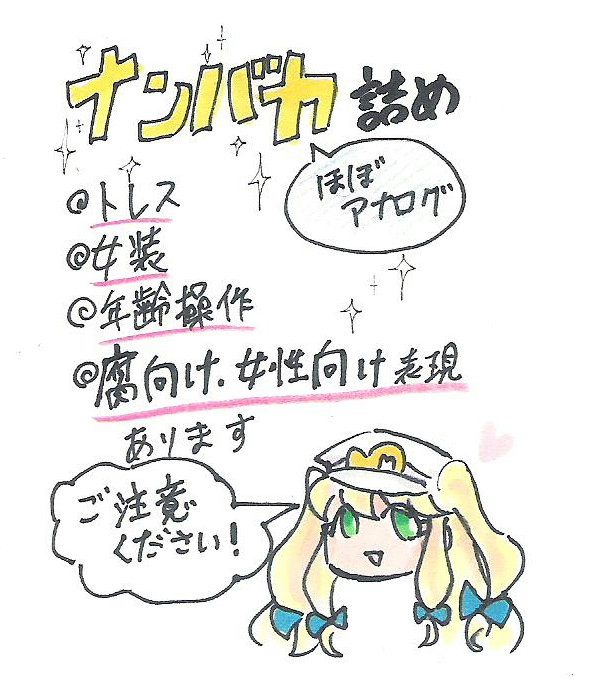 ナンバカ 詰め
ほぼ
アナログ
@トレス
@女装
@年齢操作
@腐向け、女性向け表現
あります
ご注意
ください!